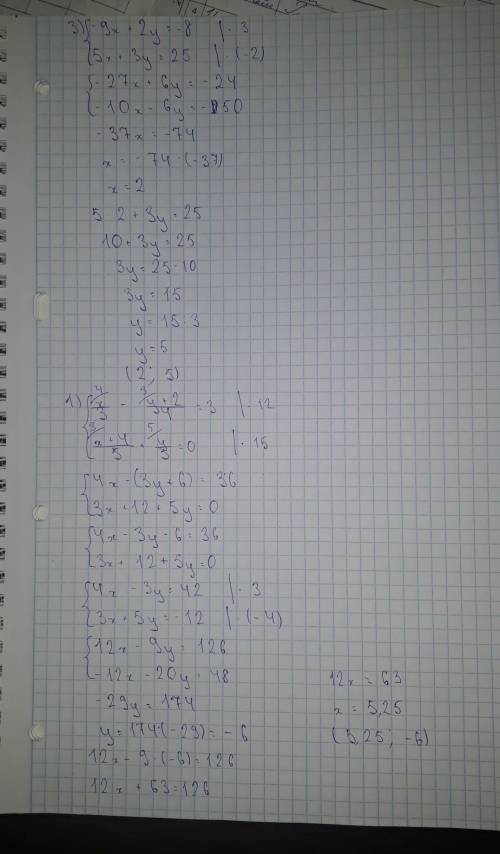 3) { -9x + 2y = -8 | · 3
5x + 3y = 25 | · (-2)
{ -27x + 6y = -24
-10x - 6y = -50
-37x = -74
x = -74 : (-37)
x = 2
5 · 2 + 3y = 25
10 + 3y = 25
3y = 25 - 10
3y = 15
y = 15 : 3
y = 5
(2; 5)
1) { x/3 - (y + 2)/4 = 3 | · 12
(x + 4)/5 + y/3 = 0 | · 15
{ 4x - (3y + 6) = 36
3x + 12 + 5y = 0
{ 4x - 3y - 6 = 36
3x + 12 + 5y = 0
{ 4x - 3y = 42 | · 3
3x + 5y = -12 | · (-4)
{ 12x - 9y = 126
-12x - 20y = 48
-29y = 174
y = 174 : (-29) = -6
12x - 9 · (-6) = 126
12x + 63 = 126
12x = 63
x = 5,25
(5,25; -6)